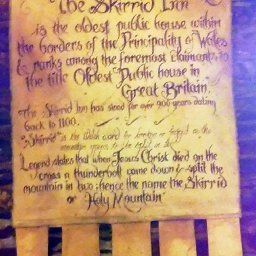 The Skirrid Inn
is the oldest public house within
the borders of the Principality of Wales
& ranks among the foremost claimants to
the title Oldest Public house in
Great Britain.
The Skirrid Inn has stood for over 900 years dating
back to 1100.
"Skirrid" is the Welsh word for
Legend states that when Jesus Christ died on the
cross a thunderbolt came down & split the
mountain in two; hence the name the Skirrid
or "Holy Mountain"